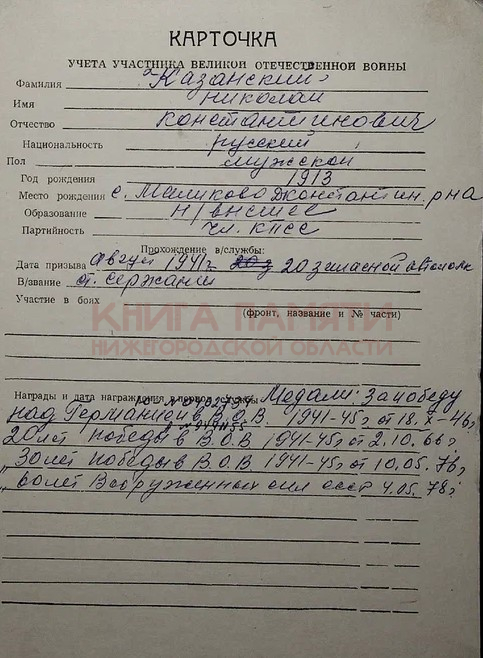 КАРТОЧКА
УЧЕТА УЧАСТНИКА ВЕЛИКОЙ ОТЕЧЕСТВЕННОЙ ВОЙНЫ
Фамилия Казанский
Имя Николай
Отчество Константинович
Национальность русский
Пол мужской
Год рождения 1913
Место рождения с. Маликово Дконстантин. р-на
Образование н/высшее
Партийность чл. КПСС
Прохождение в/службы:
Дата призыва август 1941г. 20 запасной автополк
В/звание ст. сержант
Участие в боях
(фронт, название и № части)
КНИГА ПАМЯТИ
НИЖЕГОРОДСКОЙ ОБЛАСТИ
Награды и дата награждения в период службы Медали: За победу
над Германией в В.О.В. 1941-45г от 18.X-46г.
20 лет победы в В.О.В 1941-45г от 2.10.66г
„30 лет победы в В.О.В. 1941-45г от 10.05.76г
„60 лет Вооруженных сил СССР 4.05.78г